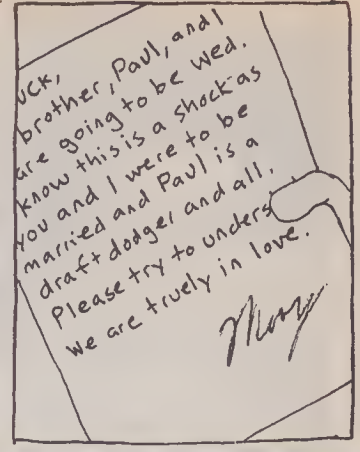 uck,
brother, Paul, and I
are going to be wed.
know this is a shock as
you and I were to be
married and Paul is a
draft dodger and all.
Please try to unders
we are truely in love.